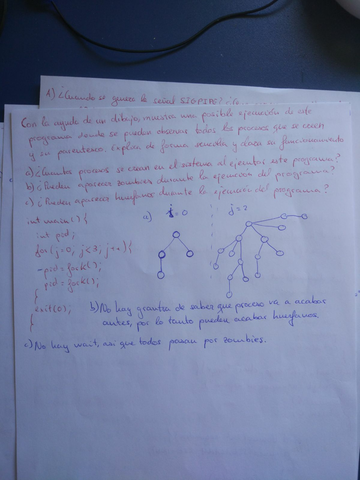 1) ¿Cuando se genera la señal SIGPIPE?
Con la ayuda de un dibujo, muestra una posible ejecución de este
programa donde se puedan observar todos los procesos que se crean
y su parentesco. Explica de forma sencilla y clara su funcionamiento
a) ¿Cuantos procesos se crean en el sistema al ejecutar este programa?
b) ¿Pueden aparecer zombires durante la ejecucion del programa?
c) ¿Pueden aparecer huerfanos durante la ejecucion del programa?
int main() {
int pid;
for(j=0, j<3, j++) {
-pid = fork();
pid = fork();
}
exit(0);
}
a) j=0 j=2
b) No hay grantia de saber que proceso va a acabar
antes, por lo tanto pueden acabar huerfanos
c) No hay wait, asi que todos pasan por zombires.